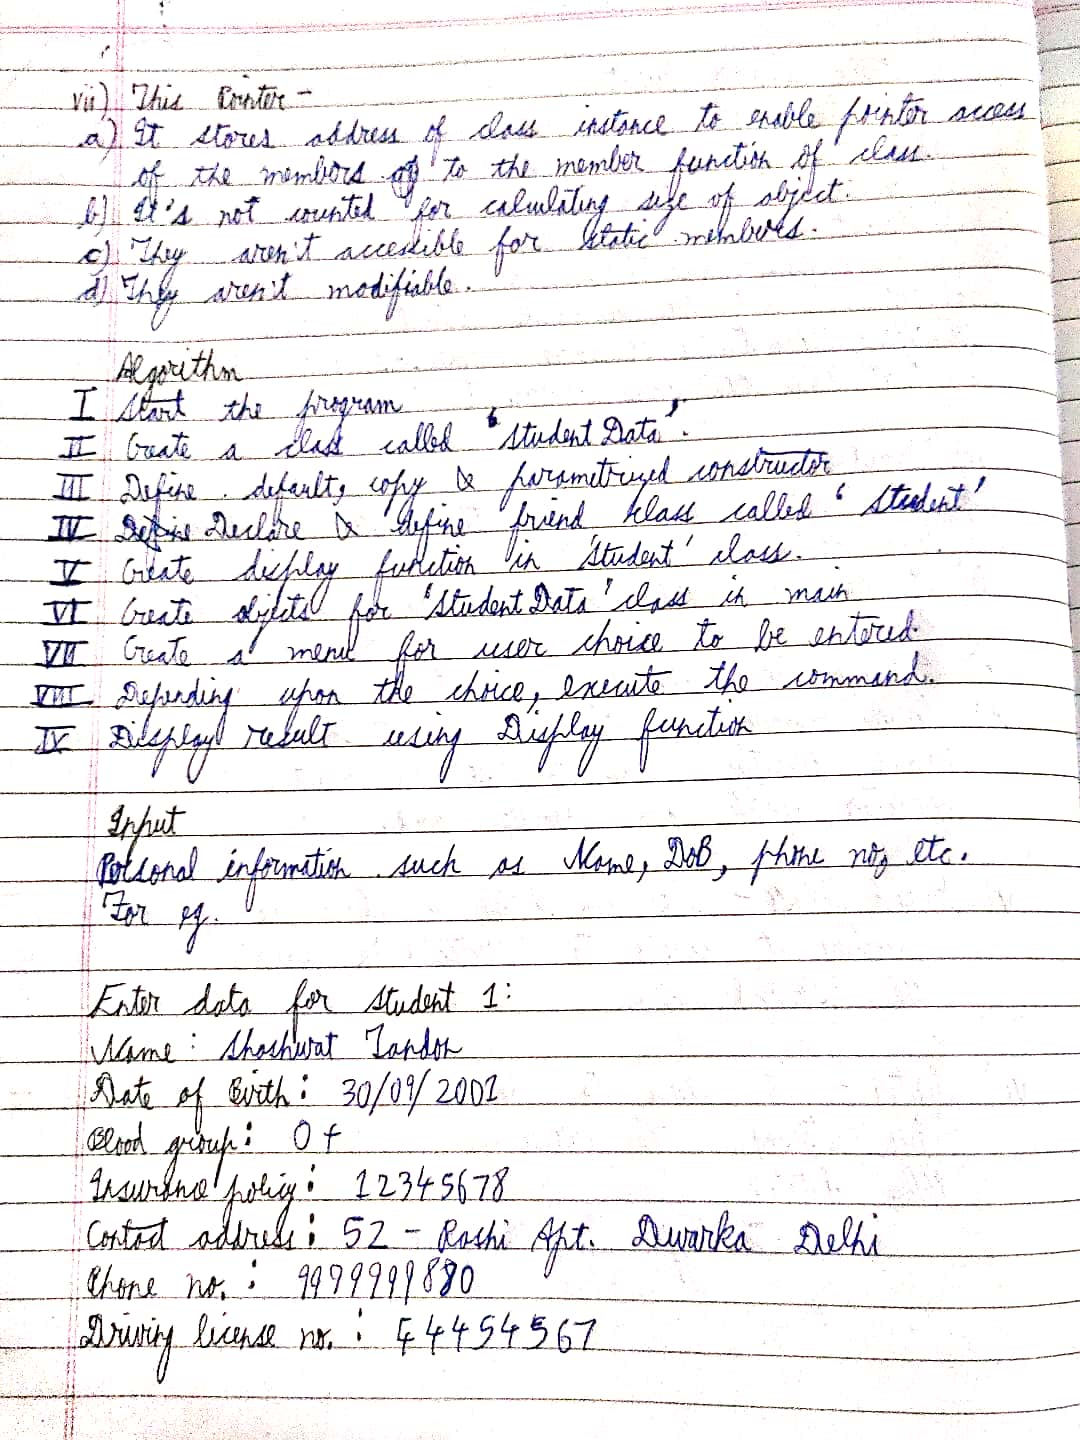 vii) This Pointer -
a) It stores address of class instance to enable pointer access
of the members to the member function of class.
b) It's not counted for calculating size of object.
c) They aren't accessible for static members.
d) They aren't modifiable.
Algorithm
I Start the program
II Create a class called 'Student Data'.
III Define default, copy & parametrized constructor
IV Declare & define friend klass called 'Student'
V Create display function in 'Student' class.
VI Create objects for 'Student Data' class in main
VII Create a menu for user choice to be entered.
VIII Depending upon the choice, execute the command.
IX Display result using Display function
Input
Personal information such as Name, DoB, phone no, etc.
For eg.
Enter data for student 1:
Name : Shashwat Tandon
Date of Birth : 30/09/2001
Blood group : O+
Insurance policy : 12345678
Contact address : 52 - Rashi Apt. Dwarka Delhi
Phone no. : 9999999880
Driving license no. : 44454567